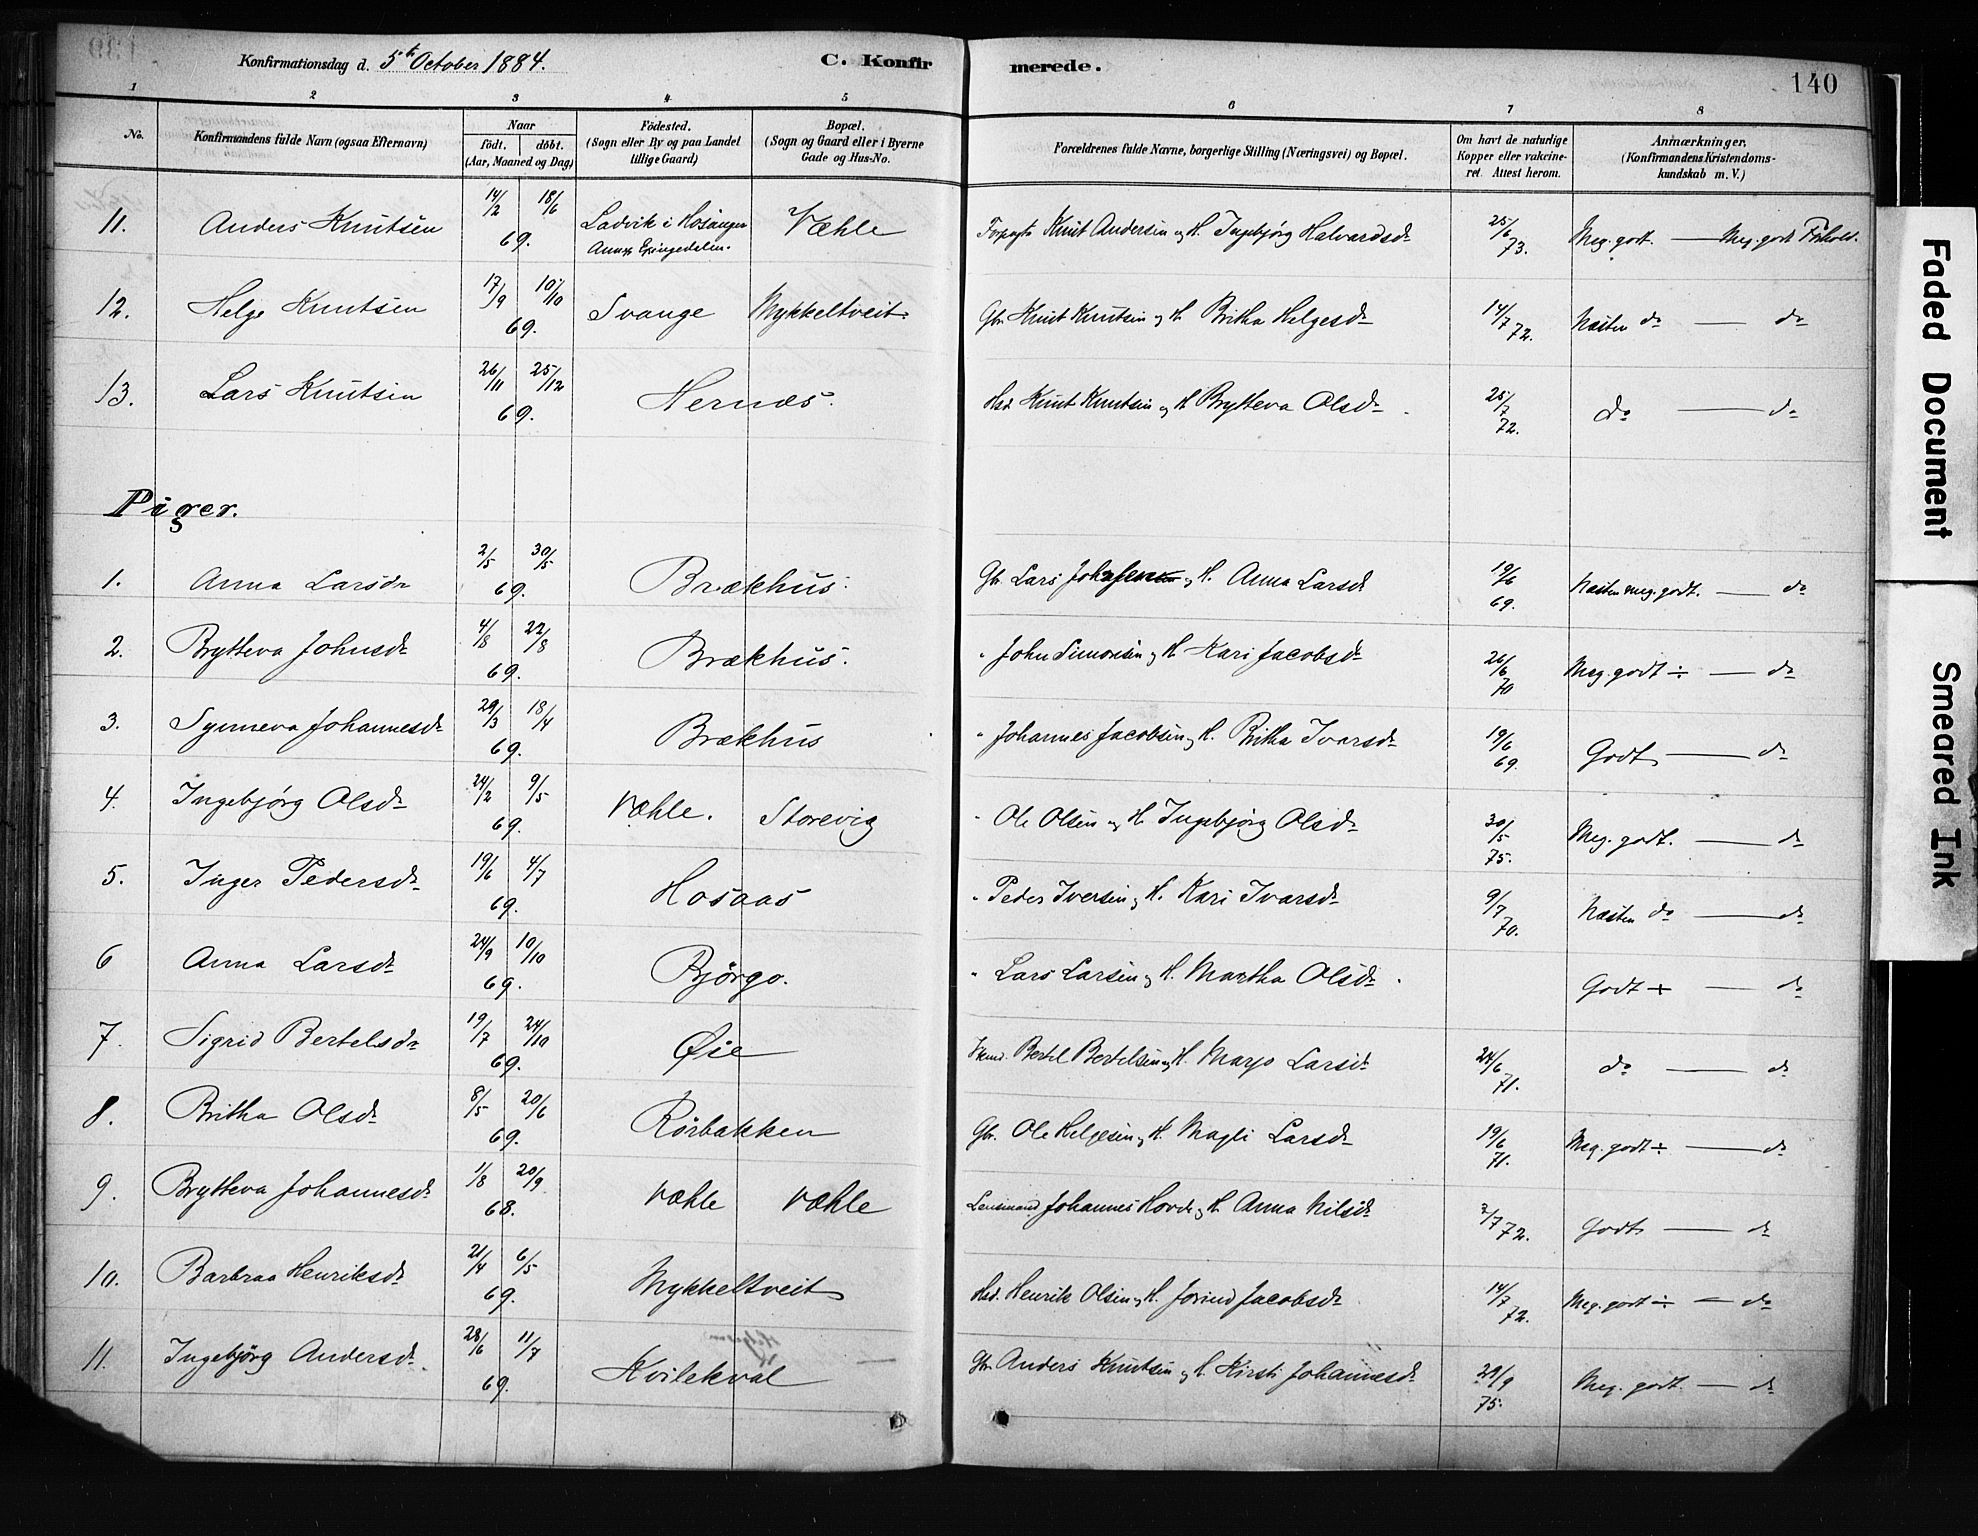 Konfirmationsdag d. 5te October 1884. C. Konfirmerede. 140
1 2 3 4 5 6 7 8
No. Konfirmandens fulde Navn (ogsaa Efternavn) Naar født. døbt. (Aar, Maaned og Dag) Fødested. (Sogn eller By og paa Landet tillige Gaard) Bopæl. (Sogn og Gaard eller i Byerne Gade og Hus-No. Forældrenes fulde Navne, borgerlige Stilling (Næringsvei) og Bopæl. Om havt de naturlige Kopper eller vakcineret. Attest herom. Anmærkninger. (Konfirmandens Kristendomskundskab m. V.)
11. Anders Knutsen 14/2 18/6 69. Ladvik i Hosanger Annex Væhle Knut Andersen og H. Ingebjørg Halvardsdr 25/6 73. Meg. godt. — Meg. godt Forhold.
12. Helge Knutsen 17/9 10/10 69. Svange Mykkeltveit Gbr. Knut Knutsen og H. Britha Helgesdr 14/7 72. Næsten do — do
13. Lars Knutsen 26/11 25/12 69. Hernæs. Hsd. Knut Knutsen og H. Brytteva Olsdr 25/7 72. do — do
Piger.
1. Anna Larsdr 2/5 30/5 69. Brækhus. Gbr. Lars Johnsen og H. Anna Larsdr 19/6 69. Næsten meg. godt. — do
2. Brytteva Johnsdr 4/8 22/8 69. Brækhus. " John Simonsen og H. Kari Jacobsdr 26/6 70 Meg. godt ÷ — do
3. Synneva Johannesdr 29/3 18/4 69. Brækhus " Johannes Jacobsen og H. Britha Ivarsdr 19/6 69. Godt — do
4. Ingebjørg Olsdr 24/2 9/5 69. Væhle. Storevig " Ole Olsen og H. Ingebjørg Olsdr 30/5 75. Meg. godt. — do
5. Inger Pedersdr 19/6 4/7 69. Hosaas " Peder Iversen og H. Kari Ivarsdr 9/7 70. Næsten do — do
6 Anna Larsdr 24/9 10/10 69. Bjørgo. " Lars Larsen og H. Martha Olsdr Godt ÷ — do
7. Sigrid Bertelsdr 19/7 24/10 69. Øie Bertel Bertelsen og H. Marjo Larsdr 24/6 71. do — do
8. Britha Olsdr 8/5 20/6 69. Rørbakken Gbr. Ole Helgesen og H. Magli Larsdr 19/6 71. Meg. godt ÷ — do
9. Brytteva Johannesdr 1/8 20/9 68. Væhle Væhle Lensmand Johannes Hovde og H. Anna Nilsdr 7/7 72. Godt — do
10. Barbraa Henriksdr 21/4 6/5 69. Mykkeltveit Hsd. Henrik Olsen og H. Jorind Jacobsdr 14/7 72. Meg. godt ÷ — do
11. Ingebjørg Andersdr. 28/6 11/7 69. Kvilekval Gbr. Anders Knutsen og H. Kirsti Johannesdr 29/9 75. Meg. godt. — do
Faded Document
Smeared Ink